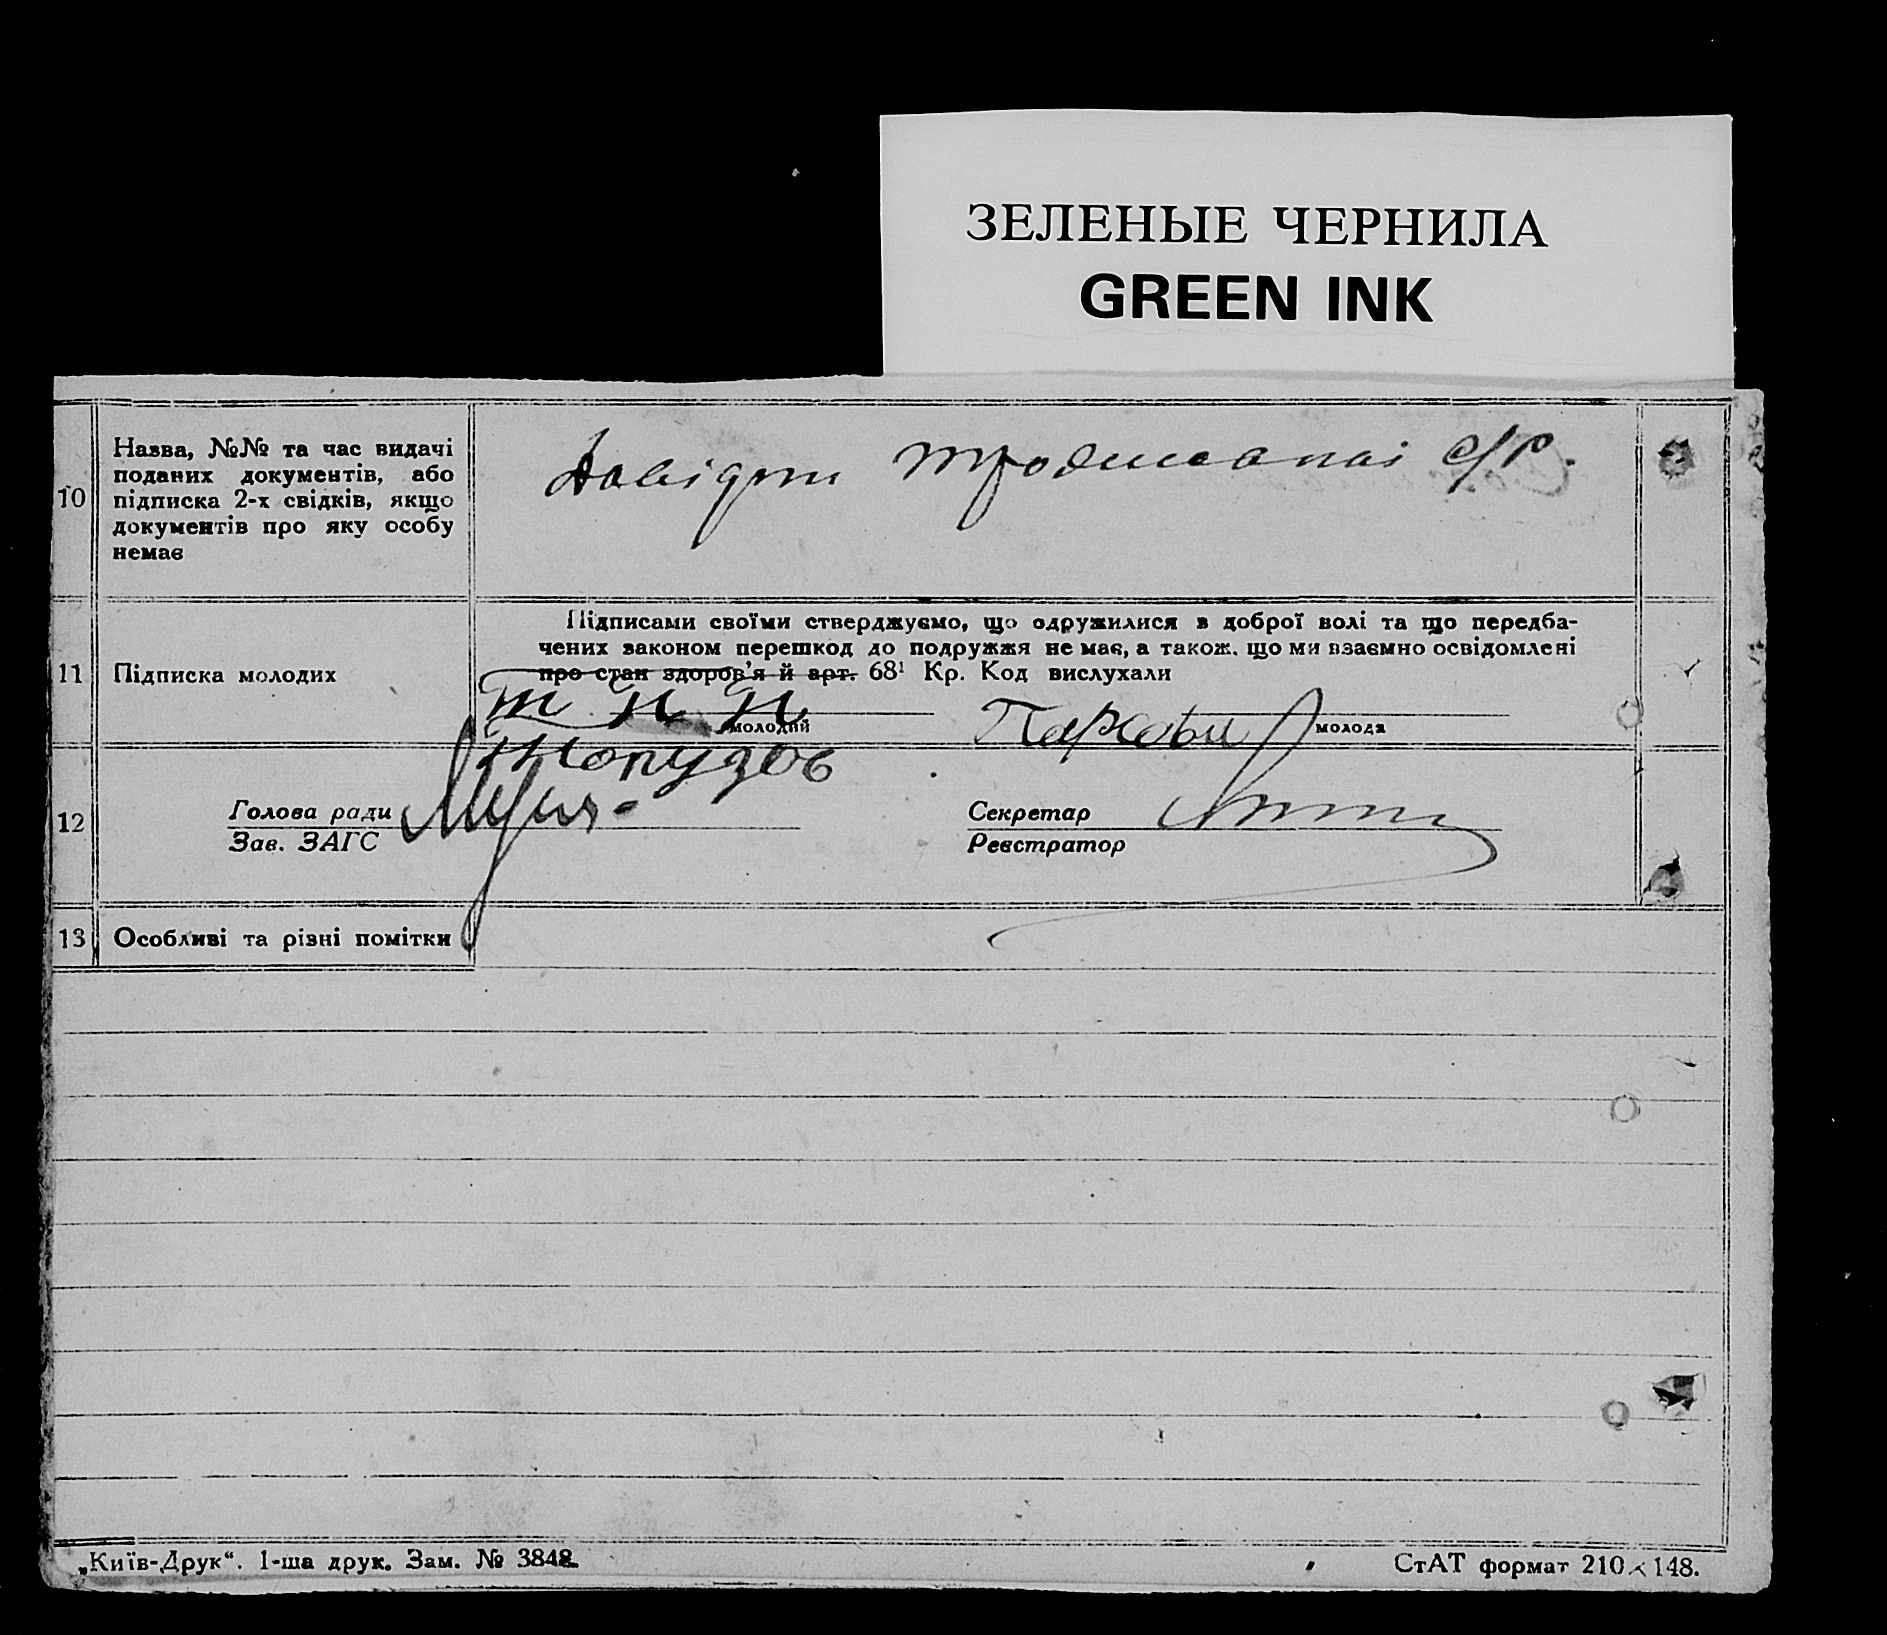 ЗЕЛЕНЫЕ ЧЕРНИЛА
GREEN INK
10
Назва, №№ та час видачі
поданих документів, або
підписка 2-х свідків, якщо
документів про яку особу
немає
Довідки с/р.
11
Підписка молодих
Підписами своїми стверджуємо, що одружилися з доброї волі та що передба-
чених законом перешкод до подружжя не має, а також, що ми взаємно освідомлені
про стан здоров’я й арт. 68¹ Кр. Код вислухали
молодий
молода
12
Голова ради
Зав. ЗАГС
Секретар
Реєстратор
13
Особливі та різні помітки
„Київ-Друк“. 1-ша друк. Зам. № 3848.
СтАТ формат 210×148.